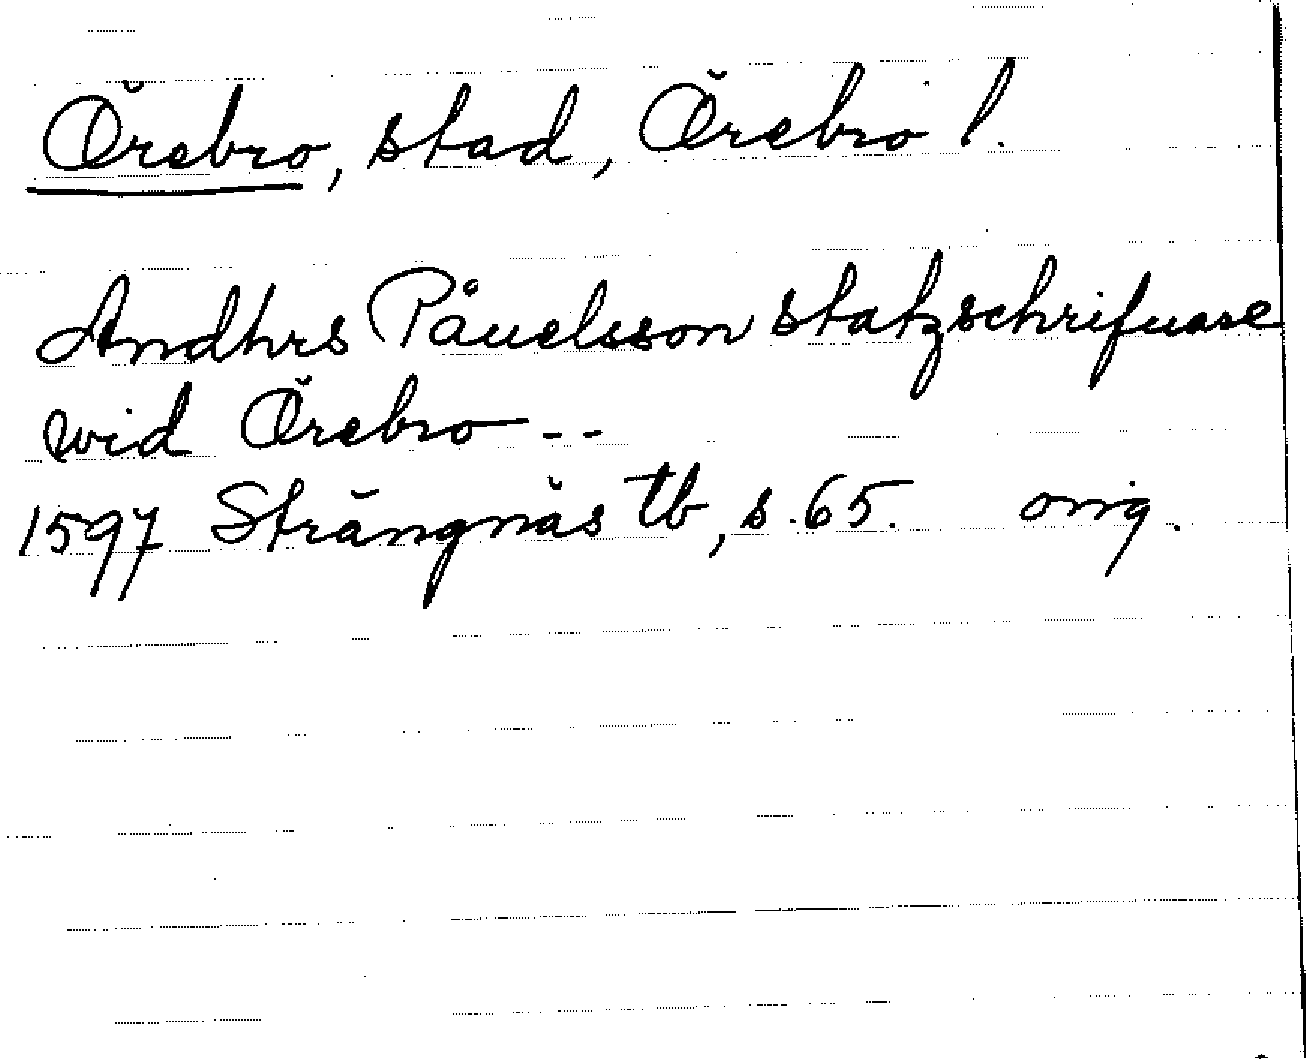 Örebro, stad, Örebro l.
Andhrs Påuelsson statzschrifuare
wid Örebro - -
1597 Strängnäs tb, s. 65. orig.